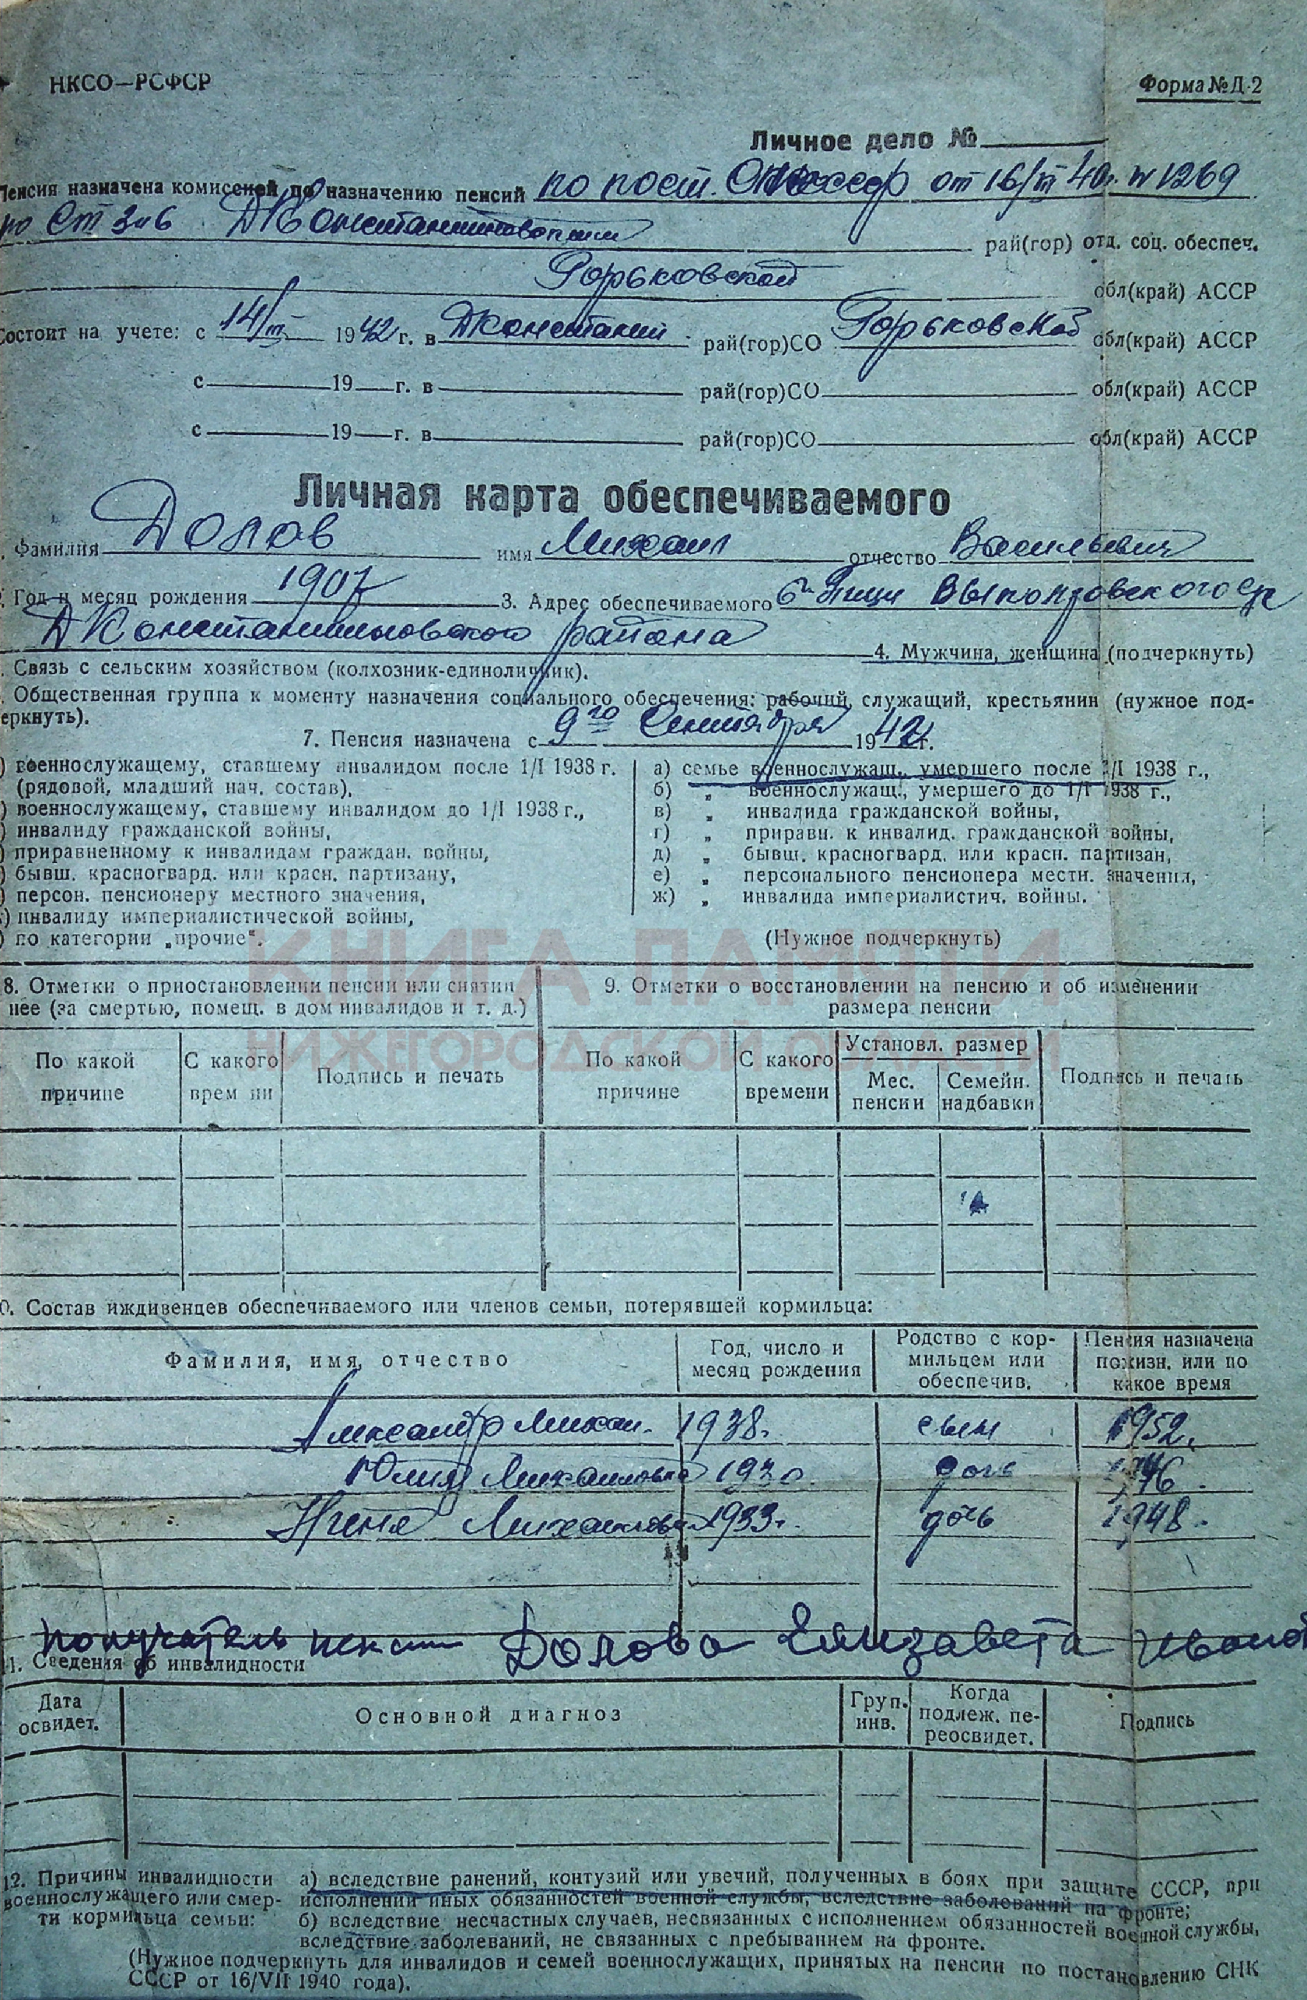 НКСО—РСФСР
Форма № Д-2
Личное дело №
Пенсия назначена комиссией по назначению пенсий по пост. СНК СССР от 16/VII 40г. № 1269
по Ст 3 и 6 ДКонстантиновским рай(гор) отд. соц. обеспеч.
Горьковской обл(край) АССР
Состоит на учете: с 14/III 1942 г. в ДКонстантин рай(гор)СО Горьковской обл(край) АССР
с 19 г. в рай(гор)СО обл(край) АССР
с 19 г. в рай(гор)СО обл(край) АССР
Личная карта обеспечиваемого
Фамилия Долов имя Михаил отчество Васильевич
Год и месяц рождения 1907 3. Адрес обеспечиваемого
ДКонстантиновского района 4. Мужчина, женщина (подчеркнуть)
Связь с сельским хозяйством (колхозник-единоличник).
Общественная группа к моменту назначения социального обеспечения: рабочий, служащий, крестьянин (нужное под-
еркнуть).
7. Пенсия назначена с 9го Сентября 1942 г.
) военнослужащему, ставшему инвалидом после 1/I 1938 г.
(рядовой, младший нач. состав),
) военнослужащему, ставшему инвалидом до 1/I 1938 г.,
) инвалиду гражданской войны,
) приравненному к инвалидам граждан. войны,
) бывш. красногвард. или красн. партизану,
) персон. пенсионеру местного значения,
) инвалиду империалистической войны,
) по категории „прочие“.
а) семье военнослужащ., умершего после 1/I 1938 г.,
б) „ военнослужащ., умершего до 1/I 1938 г.,
в) „ инвалида гражданской войны,
г) „ приравн. к инвалид. гражданской войны,
д) „ бывш. красногвард. или красн. партизан,
е) „ персонального пенсионера местн. значения,
ж) „ инвалида империалистич. войны.
(Нужное подчеркнуть)
КНИГА ПАМЯТИ
НИЖЕГОРОДСКОЙ ОБЛАСТИ
8. Отметки о приостановлении пенсии или снятии
нее (за смертью, помещ. в дом инвалидов и т. д.)
9. Отметки о восстановлении на пенсию и об изменении
размера пенсии
По какой причине
С какого времени
Подпись и печать
По какой причине
С какого времени
Установл. размер
Мес. пенсии
Семейн. надбавки
Подпись и печать
0. Состав иждивенцев обеспечиваемого или членов семьи, потерявшей кормильца:
Фамилия, имя, отчество
Год, число и месяц рождения
Родство с кор-
мильцем или
обеспечив.
Пенсия назначена
пожизн. или по
какое время
Александр Михаи. 1938г. сын 1952г.
Юлия Михаиловна 1930 дочь 1946
Нина Михаиловна 1933г. дочь 1948
получатель пенсии Долова Елизавета
11. Сведения об инвалидности
Дата освидет.
Основной диагноз
Груп. инв.
Когда
подлеж. пе-
реосвидет.
Подпись
12. Причины инвалидности
военнослужащего или смер-
ти кормильца семьи:
а) вследствие ранений, контузий или увечий, полученных в боях при защите СССР, при
исполнении иных обязанностей военной службы, вследствие заболеваний на фронте;
б) вследствие несчастных случаев, несвязанных с исполнением обязанностей военной службы,
вследствие заболеваний, не связанных с пребыванием на фронте.
(Нужное подчеркнуть для инвалидов и семей военнослужащих, принятых на пенсии по постановлению СНК
СССР от 16/VII 1940 года).